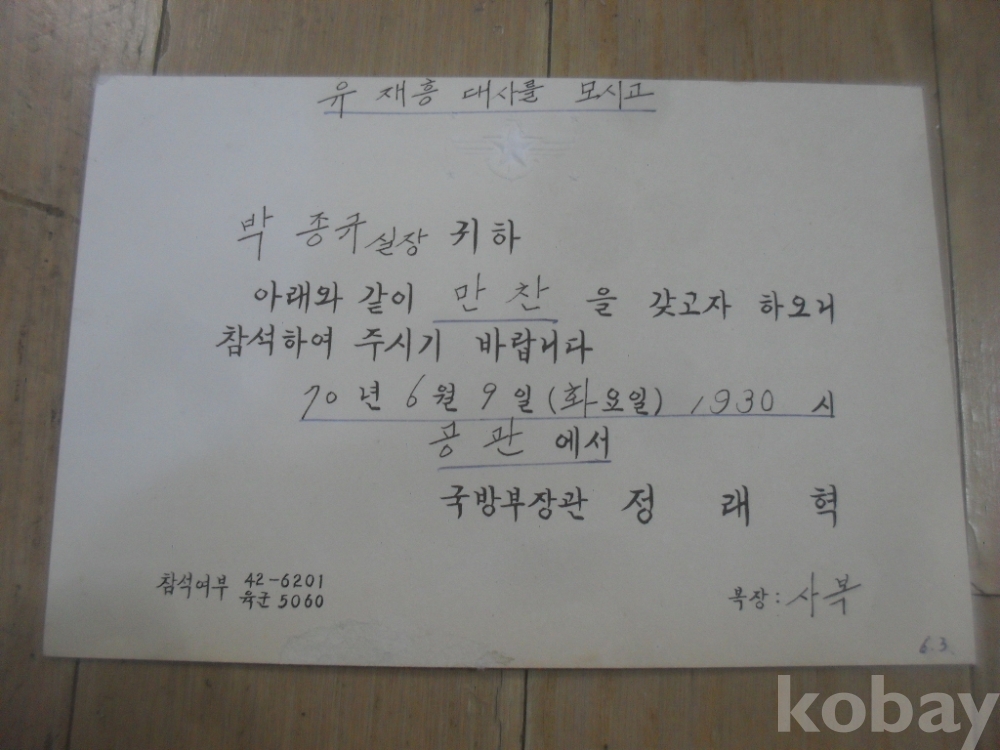 유 재흥 대사를 모시고
박 종규 실장 귀하
아래와 같이 만 찬 을 갖고자 하오니
참석하여 주시기 바랍니다
70 년 6 월 9 일 (화요일) 1930 시
공 관 에서
국방부장관 정 래 혁
참석여부 42-6201
육군 5060
복장: 사복
6.3.
kobay